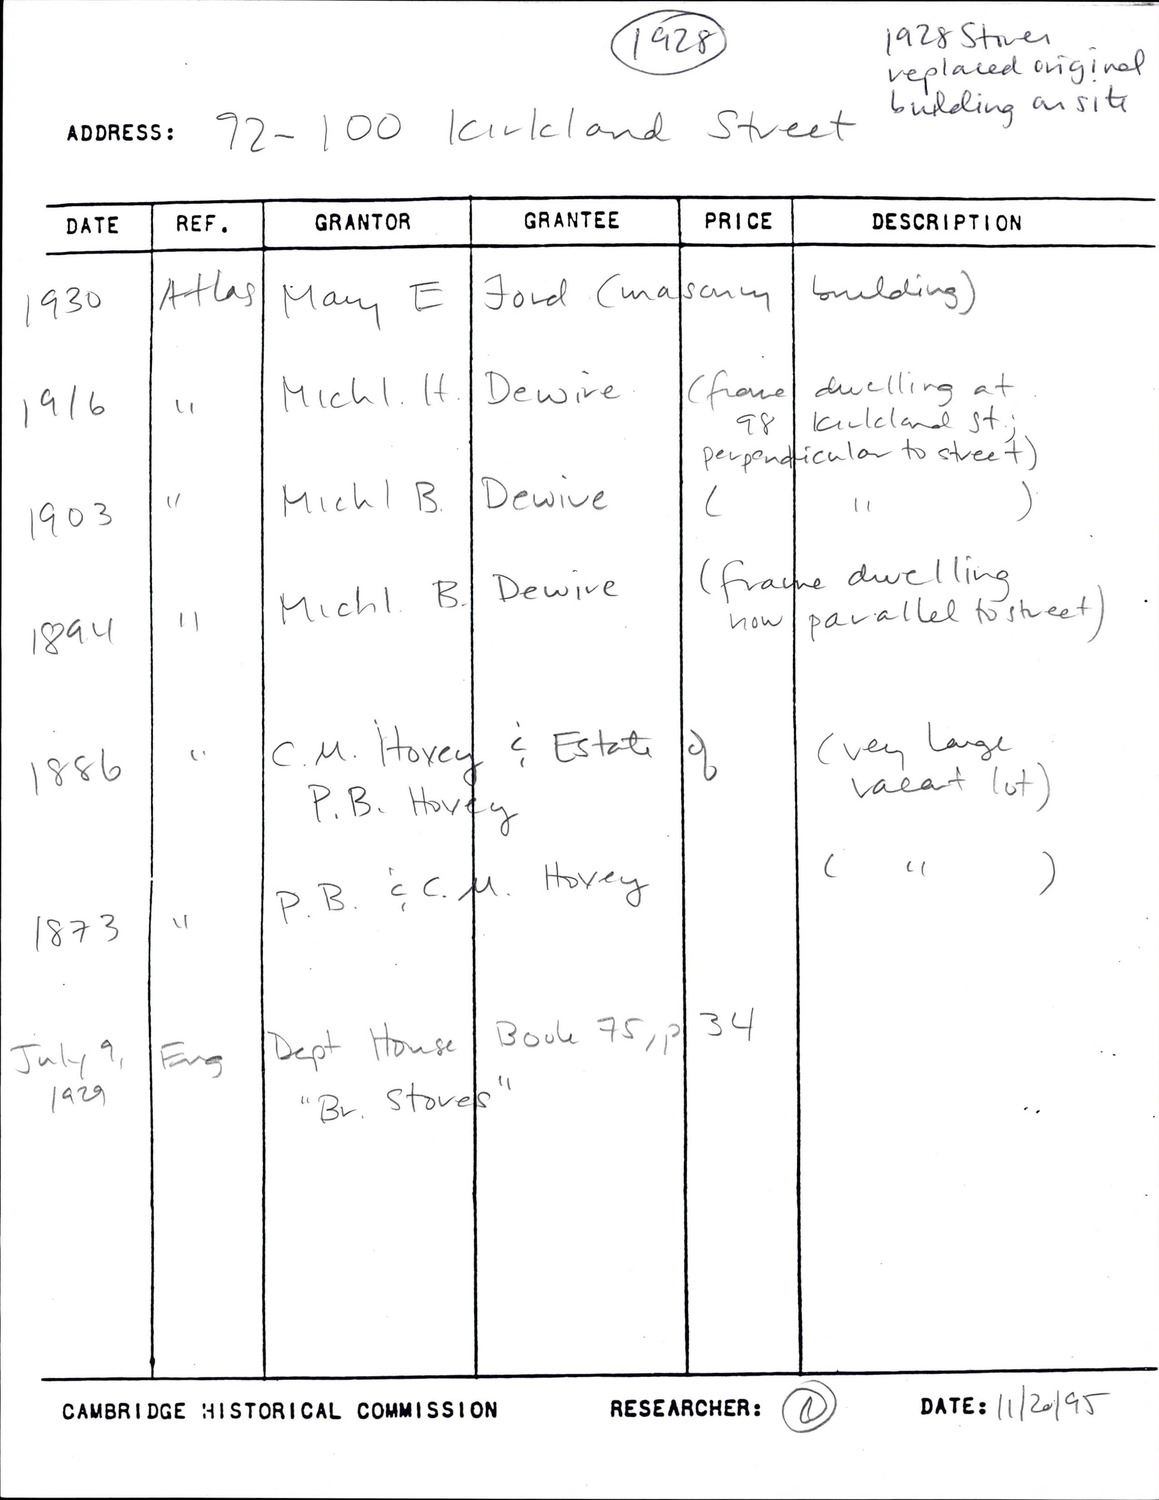 1928
1928 Stores
replaced original
building on site
ADDRESS: 92-100 Kirkland Street
DATE REF. GRANTOR GRANTEE PRICE DESCRIPTION
1930 Atlas Mary E Ford (masonry building)
1916 " Michl. H. Dewire (frame dwelling at
98 Kirkland St.;
perpendicular to street)
1903 " Michl B. Dewire ( " )
1894 " Michl. B. Dewire (frame dwelling
now parallel to street)
1886 " C.M. Hovey & Estate of (very large
P.B. Hovey vacant lot)
1873 " P.B. & C.M. Hovey ( " )
July 9, Eng Dept House Book 75, p 34
1929 "Br. Stores"
CAMBRIDGE HISTORICAL COMMISSION RESEARCHER: DATE: 11/20/95